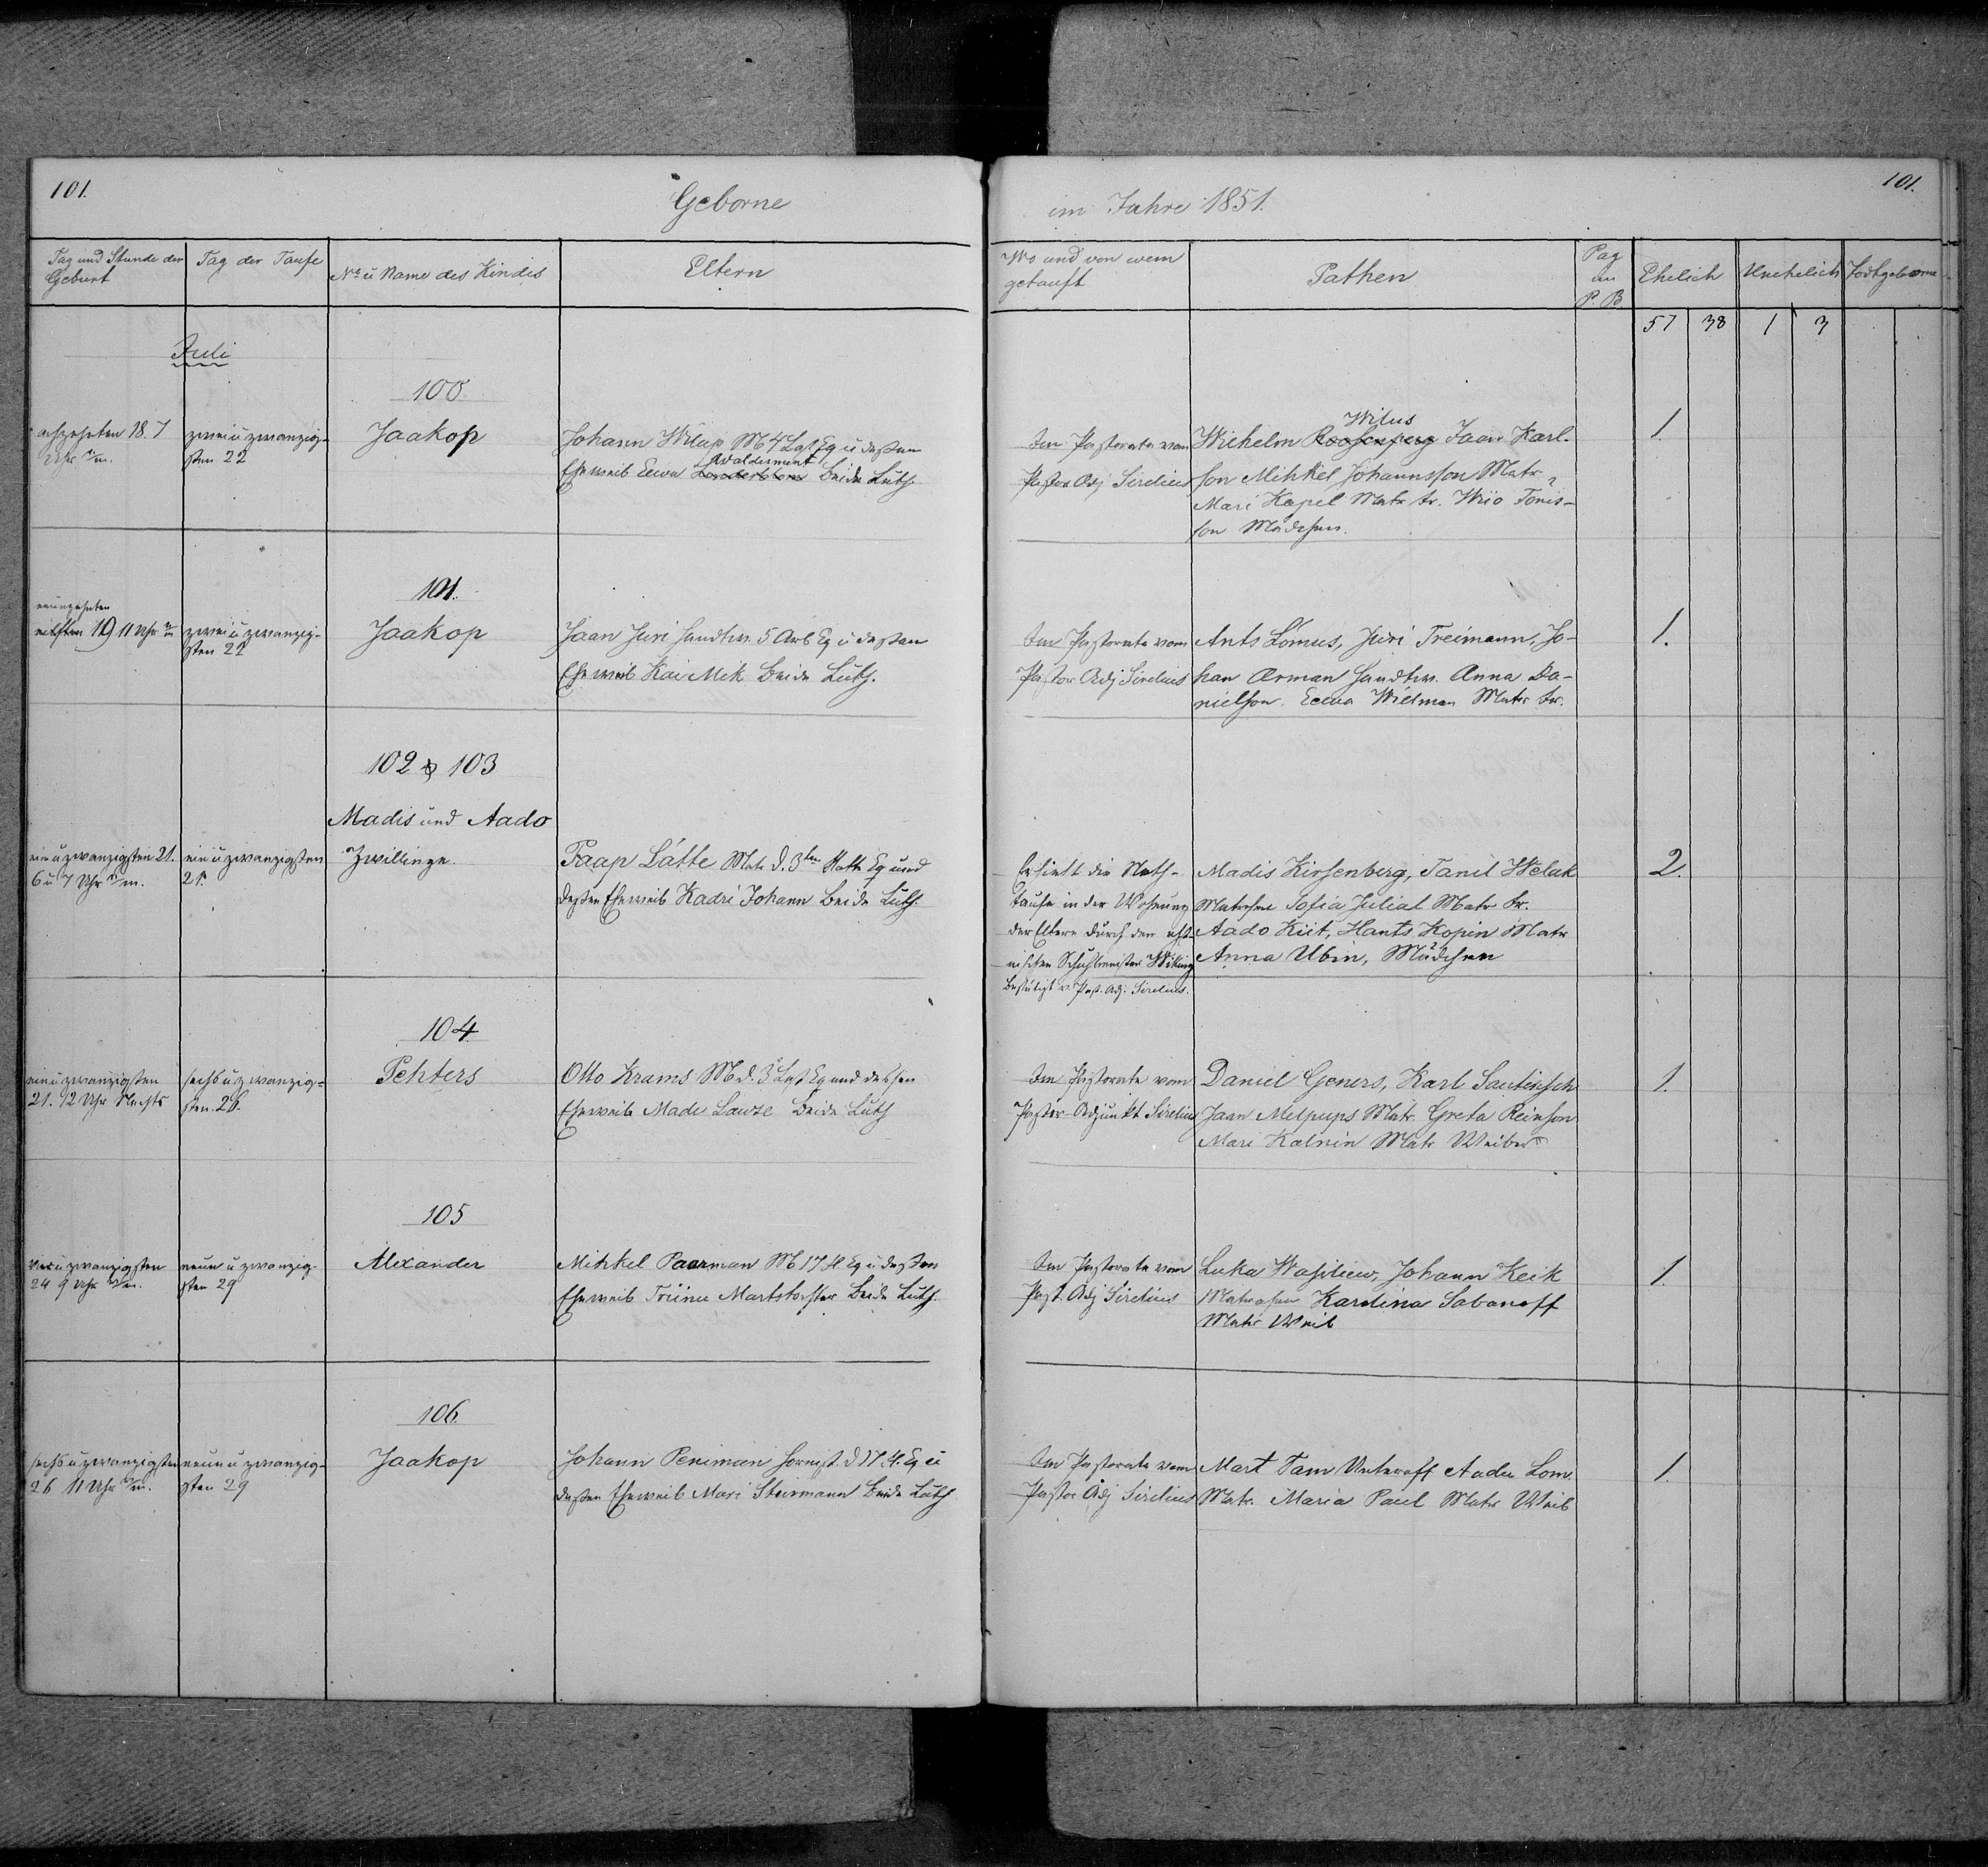 101.
Geborne
Tag und Stunde der
Geburt
Tag der Taufe
No u Name des Kindes
Eltern
Juli
100
achzehnten 18. 7
Uhr n/m.
zwei u zwanzig-
sten 22
Jaakop
Johann Wilup M 4 Last Eq u deßen
Waldermont
Eheweib Eewa beide Luth.
101.
neunzehnten
19 11 Uhr
zwei u zwanzig-
sten 22
Jaakop
Jaan Juri Handw. 5 Arb Eq u deßen
Eheweib Kai Mik beide Luth.
102 & 103
Madis und Aado
Zwillinge.
ein u zwanzigsten 21.
6 u 7 Uhr n/m.
ein u zwanzigsten
21.
Jaap Lätte Matr. d. 3ten Eq und
deßen Eheweib Kadri Johann beide Luth.
104
ein u zwanzigsten
21. 12 Uhr Nachts
sechs u zwanzig-
sten. 26.
Pehters
Otto Krams M d. 3 Last Eq und deßen
Eheweib Made Lawze beide Luth
105
vier u zwanzigsten
24 9 Uhr n/m.
neun u zwanzig-
sten 29
Alexander
Mihkel Paarman M 17 Fl Eq u deßen
Eheweib Triinu Martstochter beide Luth.
106.
sechs u zwanzigsten
26 11 Uhr n/m.
neun u zwanzig-
sten 29
Jaakop
Johann Peniman Hornist. d 17. Fl. Eq u
deßen Eheweib Mari Steinmann beide Luth
101.
im Jahre 1851.
Wo und von wem
getauft
Pathen
Pag
im
P. B
Ehelich
Unehelich
Todtgeborne
57 38 1 3
Im Pastorate vom
Pastor Adj Sirelius
Wilus
Wilhelm Jaan Karl-
son Mihkel Johannsson Matr.
Mari Kapel Matr. tr. Wiio Tonis-
son Mädchen.
1.
Im Pastorate vom
Pastor Adj Sirelius
Ants Lomus, Juri Treimann, Jo-
han Orman Handw. Anna Da-
nielson. Eewa Wielman Matr tr.
1.
Erhielt die Noth-
taufe in der Wohnung
der Eltern durch den ehst-
nischen Schulmeister Wiking
Bestätigt v. Past. Adj. Sirelius.
Madis Kirsenberg, Tanil Welak
Matrosen Sofia Julial Matr tr.
Aado Kiit, Hants Kopin Matr
Anna Ubin, Mädchen
2.
Im Pastorate vom
Pastor-Adjunkt Sirelius
Daniel Geners, Karl Sautinsch
Jaan Melpups Matr. Greta Reinson
Mari Kalnin Matr Weiber
1.
Im Pastorate vom
Past. Adj Sirelius
Luka Wasiliew, Johann Keik
Matrosen Karolina Sabanoff
Matr Weib
1.
Im Pastorate vom
Pastor Adj Sirelius
Mart Tam Unteroff Aadu Lom.
Matr. Maria Paul Matr Weib
1.